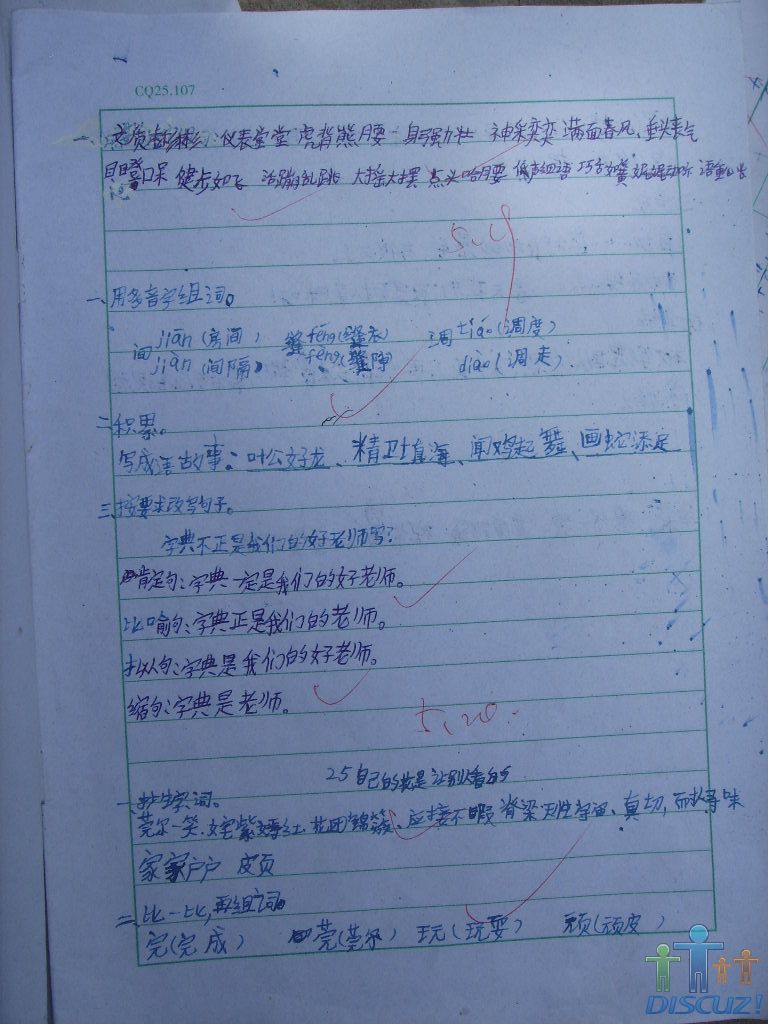 CQ25.107
一、文质彬彬 仪表堂堂 虎背熊腰 身强力壮 神采奕奕 满面春风、垂头丧气
目瞪口呆 健步如飞 活蹦乱跳 大摇大摆 点头哈腰 低声细语 巧舌如簧 娓娓动听 语重心长
5.19
一、用多音字组词。
间 jiān (房间) 缝 féng (缝衣) 调 tiáo (调度)
jiàn (间隔) fèng (缝隙) diào (调走)
二、积累。
写成语故事: 叶公好龙、精卫填海、闻鸡起舞、画蛇添足
三、按要求改写句子。
字典不正是我们的好老师吗?
肯定句:字典一定是我们的好老师。
比喻句:字典正是我们的老师。
拟人句:字典是我们的好老师。
缩句:字典是老师。
5.20.
25 自己的花是让别人看的
一、抄生字词。
莞尔一笑、姹紫嫣红、花团锦簇、应接不暇 脊梁 真切、耐人寻味
家家户户 皮页
二、比一比,再组词。
完(完成) 莞(莞尔) 玩(玩耍) 顽(顽皮)
DISCUZ!